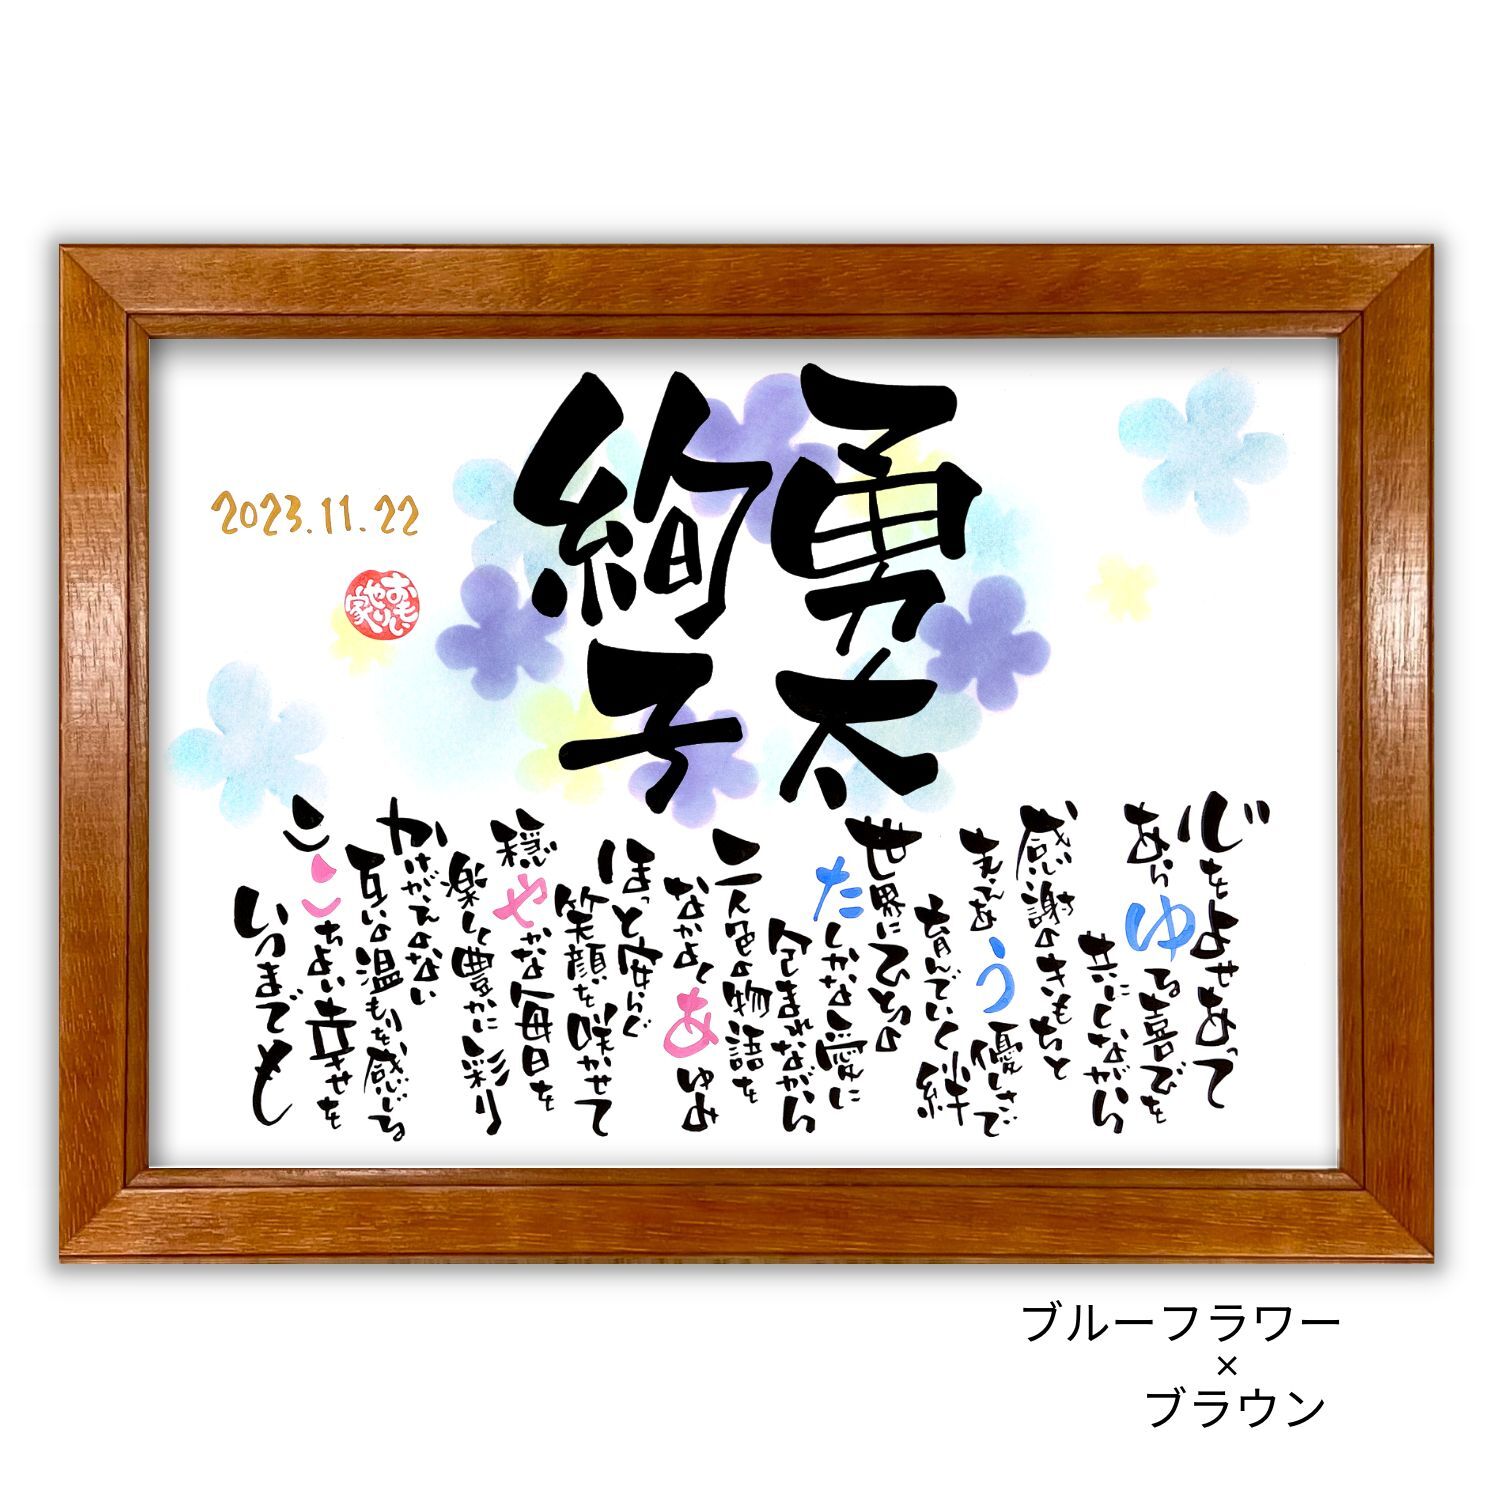 勇太
絢子
心をよせあって
あらゆる喜びを
共にしながら
感謝のきもちと
支えあう優しさで
育んでいく絆
世界にひとつの
たしかな愛に
包まれながら
二人色の物語を
なかよくあゆみ
ほっと安らぐ
笑顔を咲かせて
穏やかな毎日を
楽しく豊かに彩り
かけがえのない
互いの温もりを感じる
ここちよい幸せを
いつまでも
2023.11.22
おもいやり家
ブルーフラワー
×
ブラウン